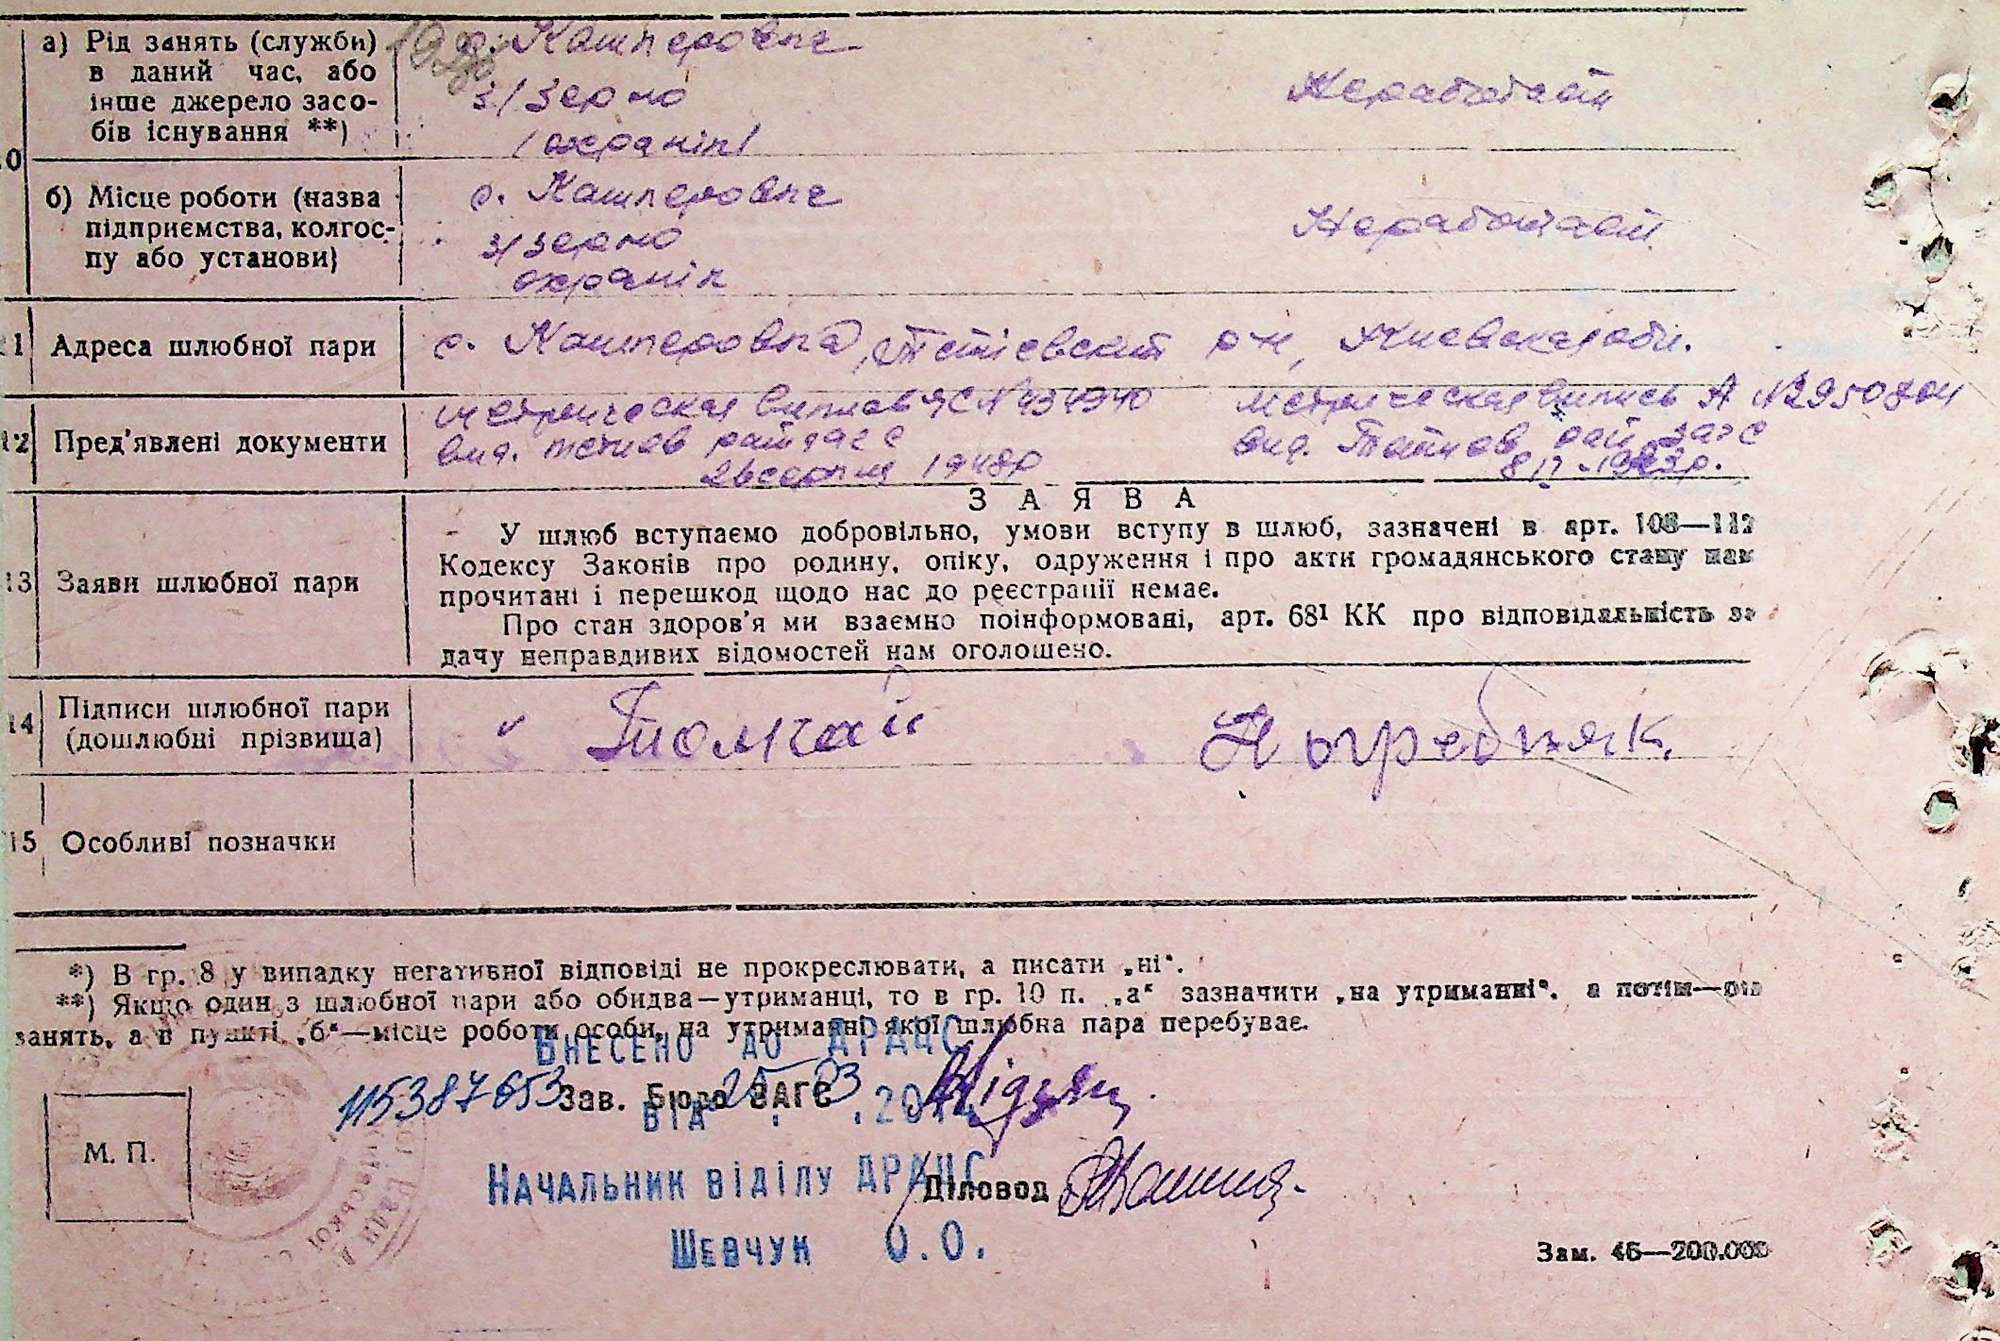 а) Рід занять (служби)
в даний час, або
інше джерело засо-
бів існування **)
с. Кашперовка
з/зерно
(охранік)
Неработает
10
б) Місце роботи (назва
підприємства, колгос-
пу або установи)
с. Кашперовка
з/зерно
охранік
Неработает
11 Адреса шлюбної пари
с. Кашперовка, Тетіевский р-н, Киевская обл.
12 Пред'явлені документи
метрическая випись ЯС № 434940
вид. райзагс
26 серпня 1948р
метрическая випись А №2950804
вид. рай загс
13 Заяви шлюбної пари
ЗАЯВА
У шлюб вступаємо добровільно, умови вступу в шлюб, зазначені в арт. 108—112
Кодексу Законів про родину, опіку, одруження і про акти громадянського стану нам
прочитані і перешкод щодо нас до реєстрації немає.
Про стан здоров'я ми взаємно поінформовані, арт. 68¹ КК про відповідальність за
дачу неправдивих відомостей нам оголошено.
14 Підписи шлюбної пари
(дошлюбні прізвища)
Томчай
Погребняк.
15 Особливі позначки
*) В гр. 8 у випадку негативної відповіді не прокреслювати, а писати „ні“.
**) Якщо один з шлюбної пари або обидва—утриманці, то в гр. 10 п. „а“ зазначити „на утриманні“, а потім—рід
занять, а в пункті „б“—місце роботи особи, на утриманні якої шлюбна пара перебуває.
Внесено до ДРАЦС
115387653
Зав. Бюро ЗАГС
від 25.03.201
М. П.
Начальник відділу ДРАЦС
Діловод
Шевчук О.О.
Зам. 46—200.000